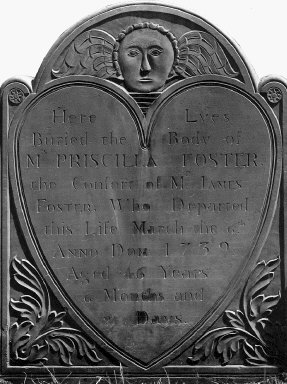 Here Lyes
Buried the Body of
Mrs PRISCILLA FOSTER,
the Consort of Mr James
Foster, Who Departed
this Life March the 6th
Anno Dom 1739
Aged 46 Years
6 Months and
Days.